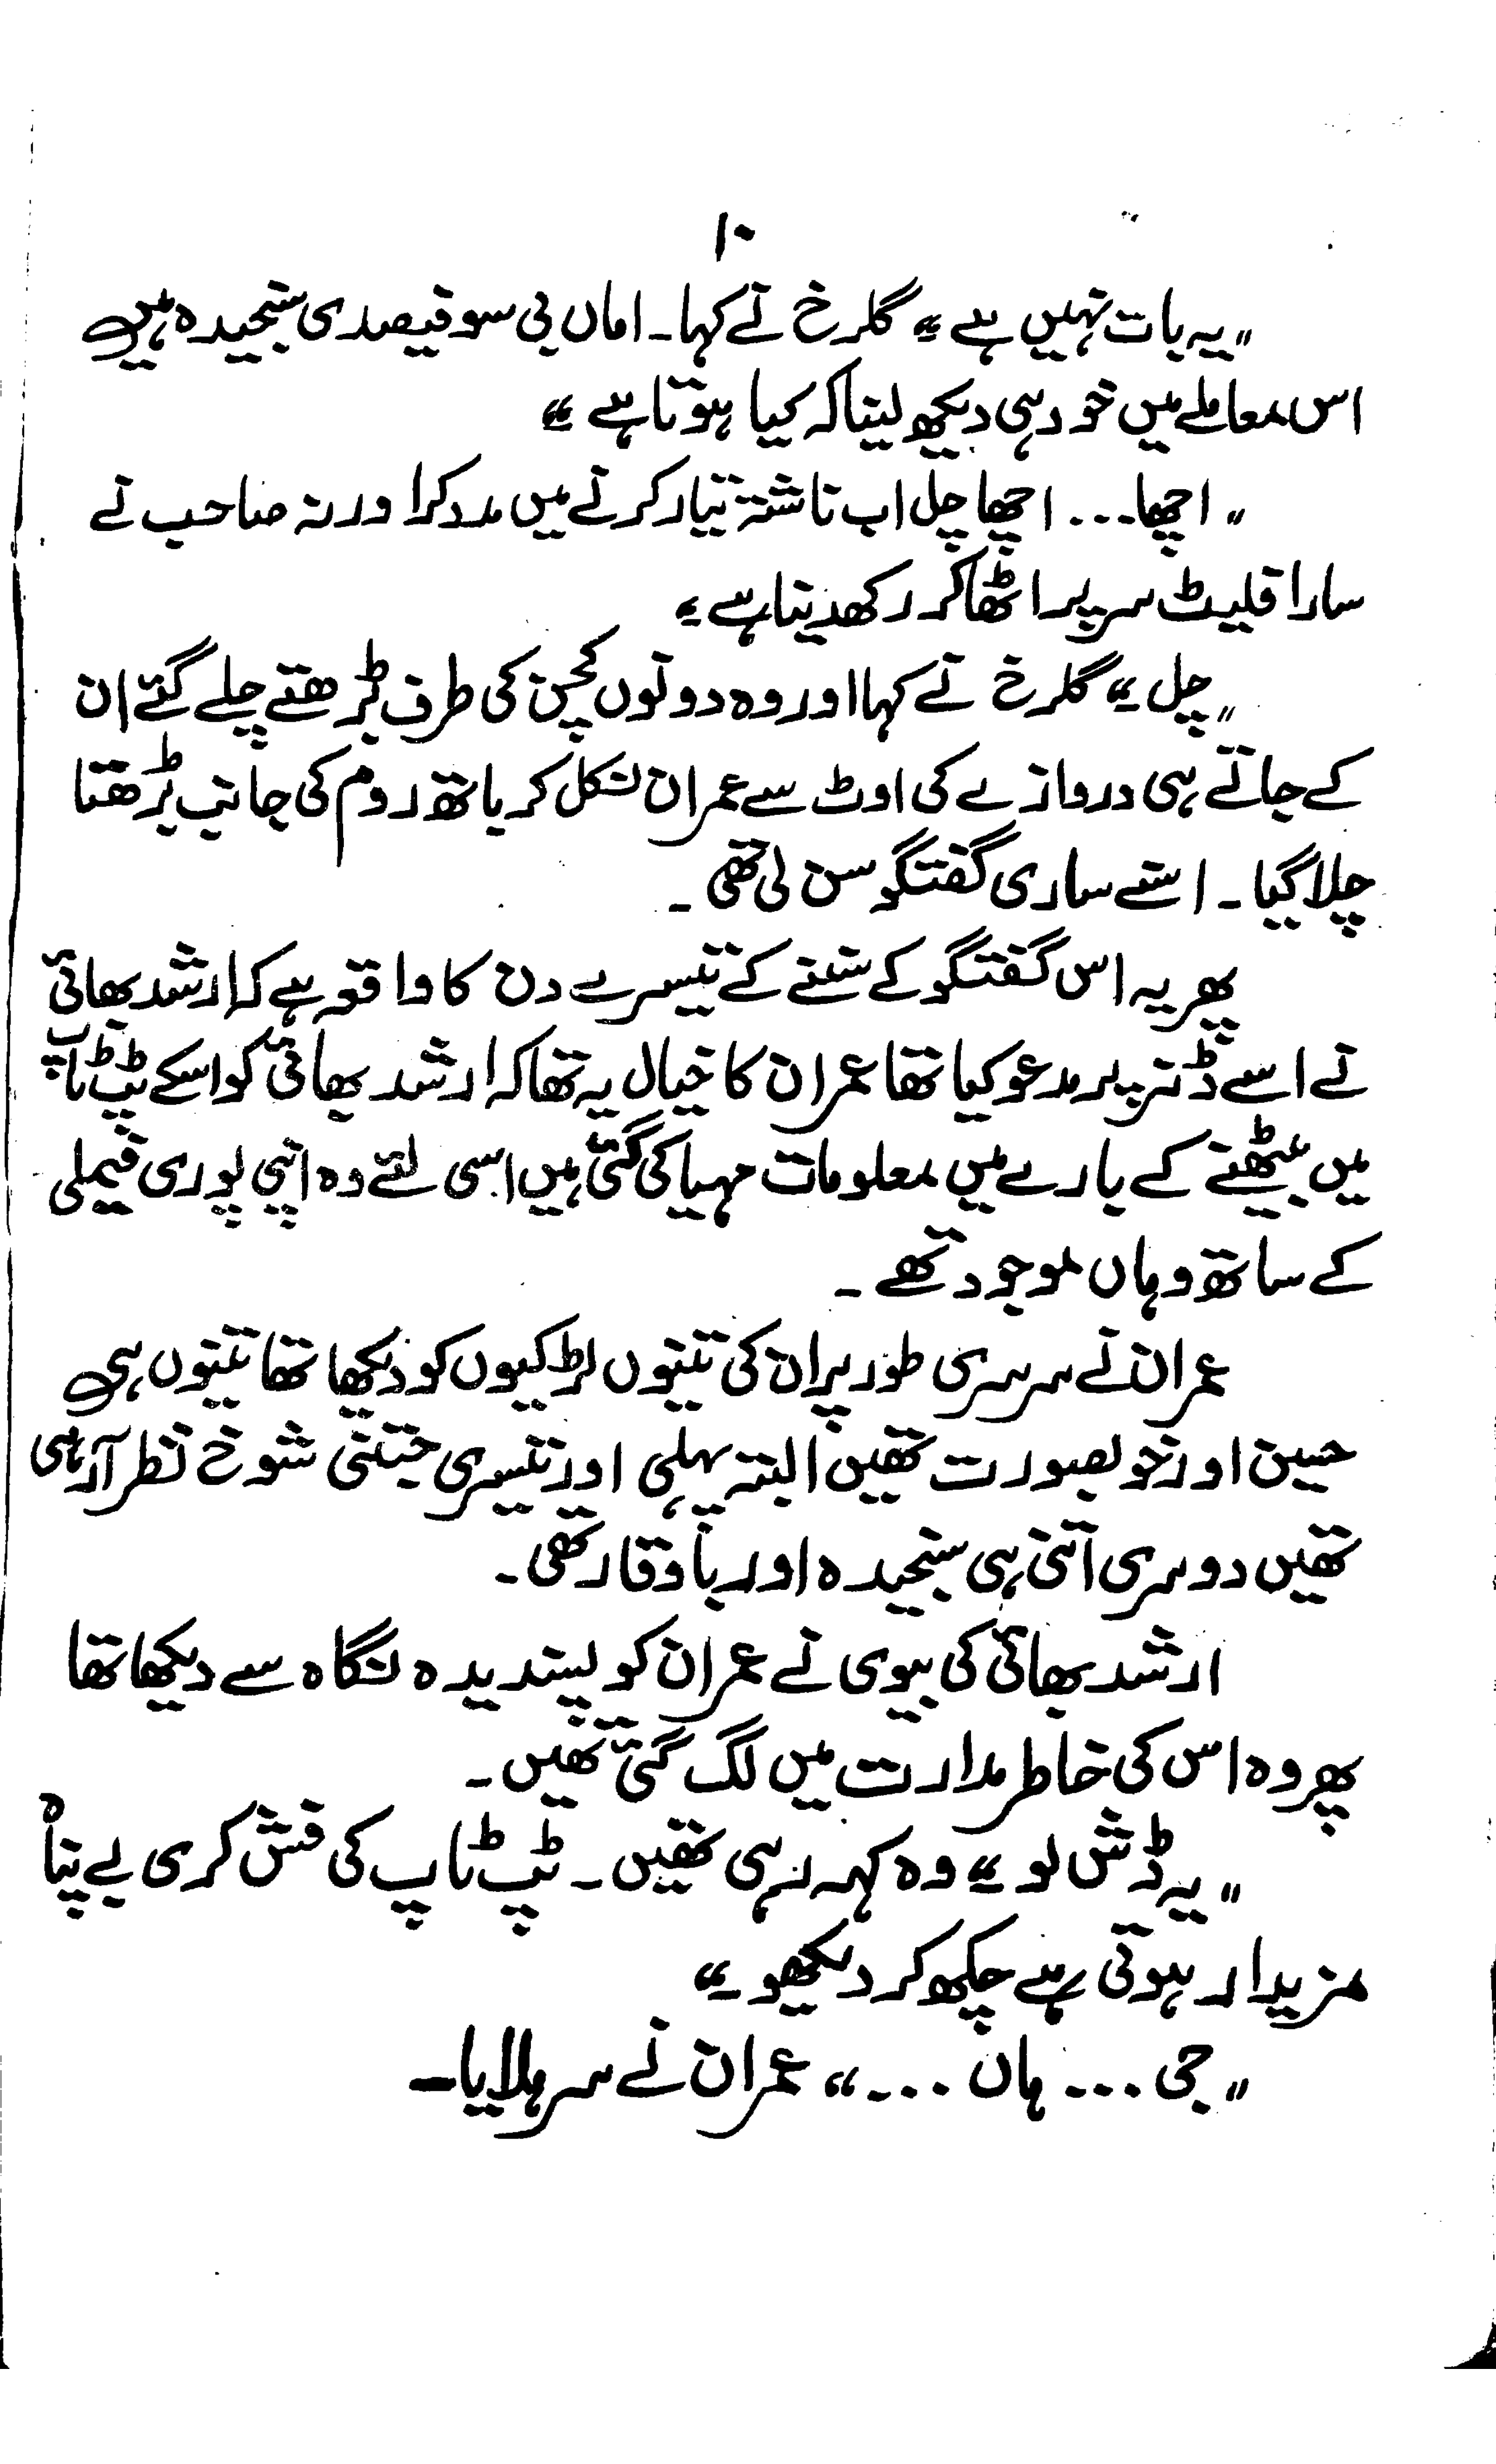 ۱۰
”یہ بات نہیں ہے“ گلرخ نے کہا۔ اماں بی سو فیصدی سنجیدہ ہیں
اس معاملے میں خود ہی دیکھ لینا کہ کیا ہوتا ہے“
”اچھا... اچھا چل اب ناشتہ تیار کرنے میں مدد کرا ورنہ صاحب نے
سارا فلیٹ سر پر اٹھا کر رکھدینا ہے“
”چل“ گلرخ نے کہا اور وہ دونوں کچن کی طرف بڑھتے چلے گئے ان
کے جاتے ہی دروازے کی اوٹ سے عمران نکل کر باتھ روم کی جانب بڑھتا
چلا گیا۔ اسنے ساری گفتگو سن لی تھی۔
پھر یہ اس گفتگو کے سننے کے تیسرے دن کا واقعہ ہے کہ ارشد بھائی
نے اسے ڈنر پر مدعو کیا تھا عمران کا خیال یہ تھا کہ ارشد بھائی کو اسکے ٹپ ٹاپ
میں بیٹھنے کے بارے میں معلومات مہیا کی گئی ہیں اسی لئے وہ اپنی پوری فیملی
کے ساتھ وہاں موجود تھے۔
عمران نے سرسری طور پر ان کی تینوں لڑکیوں کو دیکھا تھا تینوں ہی
حسین اور خوبصورت تھیں البتہ پہلی اور تیسری جتنی شوخ نظر آرہی
تھیں دوسری اتنی ہی سنجیدہ اور باوقار تھی۔
ارشد بھائی کی بیوی نے عمران کو پسندیدہ نگاہ سے دیکھا تھا
پھر وہ اس کی خاطر مدارت میں لگ گئی تھیں۔
”یہ ڈش لو“ وہ کہہ رہی تھیں۔ ٹپ ٹاپ کی فش کری بے پناہ
مزیدار ہوتی ہے چکھ کر دیکھو۔“
”جی... ہاں...“ عمران نے سر ہلایا۔